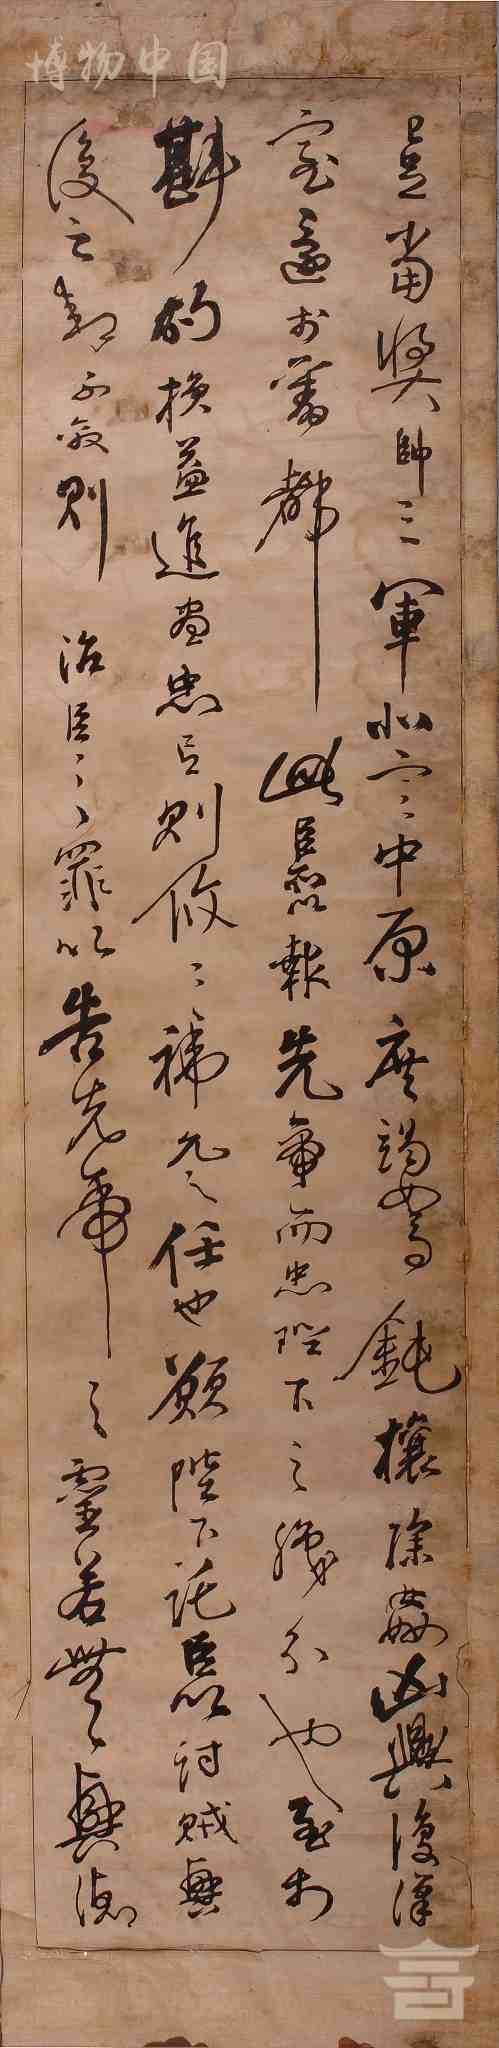 博物中国
足當獎帥三軍北定中原庶竭駑鈍攘除姦凶興復漢
室還於舊都此臣所以報先帝而忠陛下之職分也至於
斟酌損益進盡忠言則攸之禕允之任也願陛下託臣以討賊興
復之効不效則治臣之罪以告先帝之靈若無興德